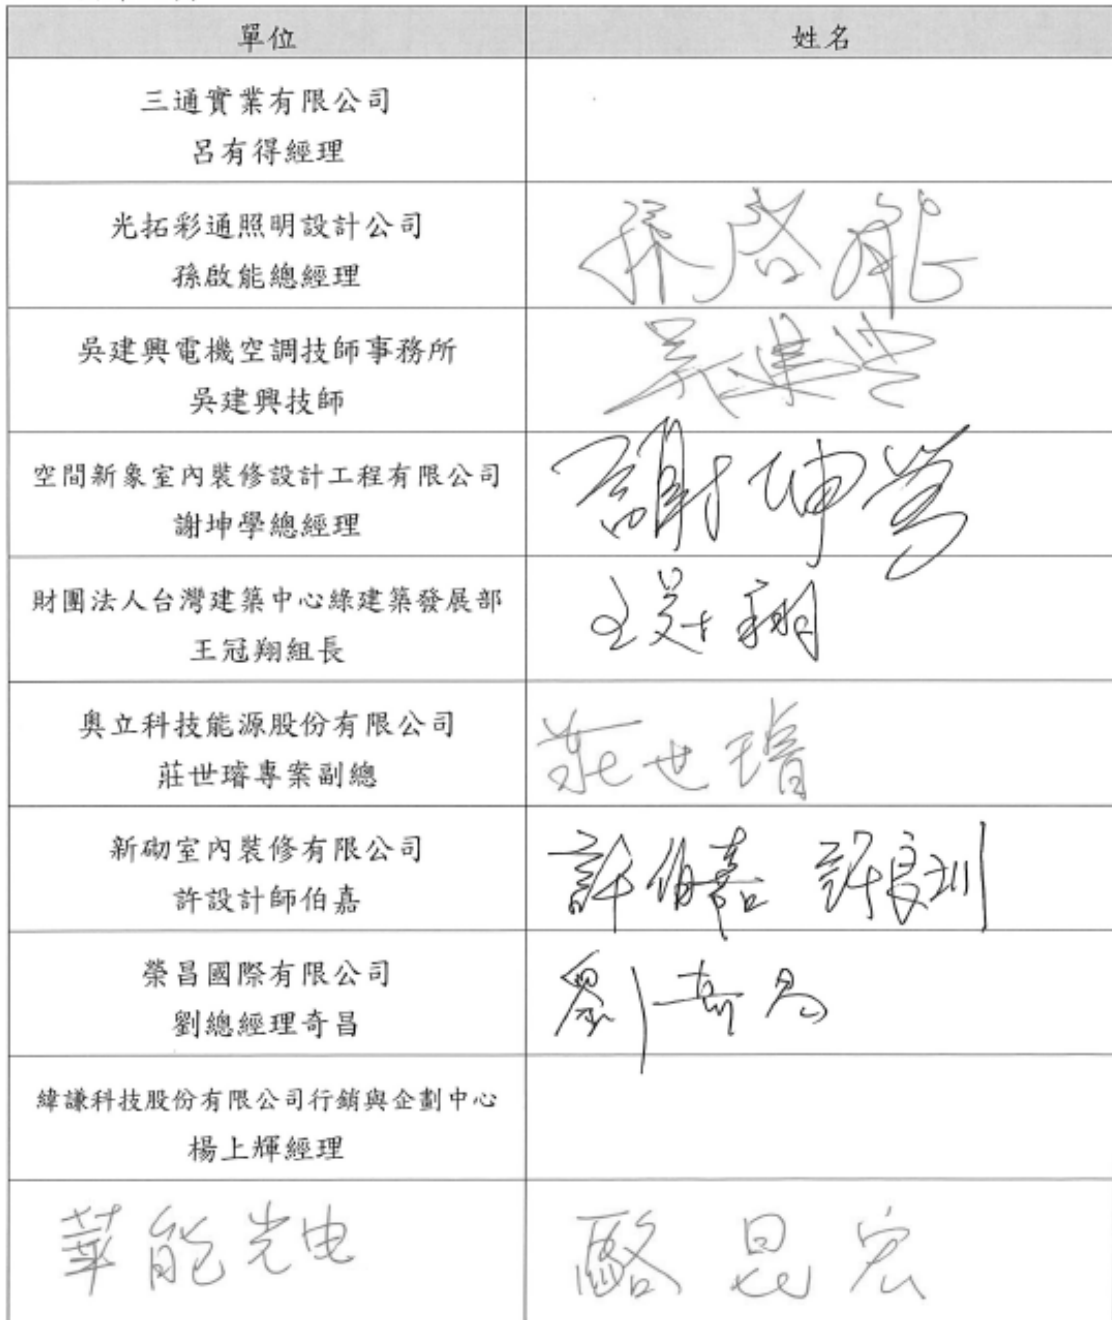 單位 姓名
三通實業有限公司
呂有得經理
光拓彩通照明設計公司
孫啟能總經理
孫啓能
吳建興電機空調技師事務所
吳建興技師
吳建兴
空間新象室內裝修設計工程有限公司
謝坤學總經理
謝坤学
財團法人台灣建築中心綠建築發展部
王冠翔組長
王冠翔
奧立科技能源股份有限公司
莊世璿專案副總
莊世璿
新砌室內裝修有限公司
許設計師伯嘉
許伯嘉 許良圳
榮昌國際有限公司
劉總經理奇昌
劉奇昌
緯謙科技股份有限公司行銷與企劃中心
楊上輝經理
華能光电 昆宏